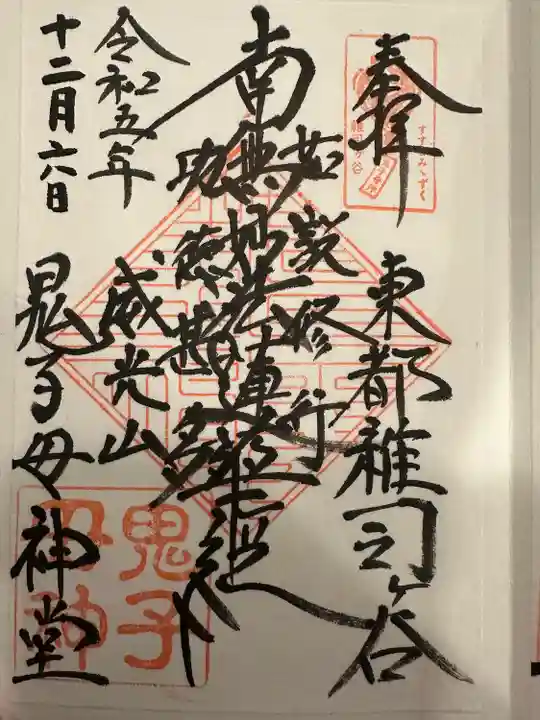 奉拝
東都雑司ヶ谷
若説修行
南無妙法蓮華経
功徳甚多
威光山
令和五年
十二月六日
鬼子母神堂
すすきみみずく
雑司ヶ谷
鬼子
母神